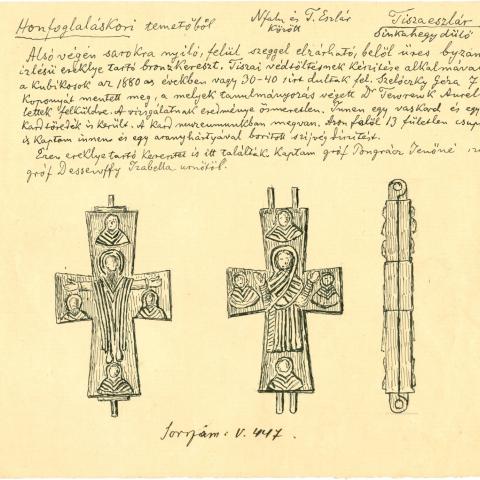 Honfoglaláskori temetőből
Nfalu és T. Eszlár
között
Tiszaeszlár
Sinkahegy dűlő
Alsó végén sarokra nyiló, felül szeggel elzárható, belől üres byzán
izlésü ereklye tartó bronzkereszt. Tiszai védtöltésnek készitése alkalmáva
a kubikosok az 1880 as években vagy 30-40 sirt dultak fel. Szelóczky Géza 7
koponyát mentett meg, a melyek tanulmányozás végett Dr Török Aurel
lettek felküldve. A vizsgálatnak eredménye ösmeretlen. Innen egy vaskard és egy
kardtöredék is került. A kard muzeumunkban megvan. Azon felől 13 fületlen csup
is kaptam innen és egy aranyhártyával boritott szijvég diszitést.
Ezen ereklye tartó keresztet is itt találták. Kaptam gróf Pongrácz Jenőné
gróf Dessewffy Izabella urnőtől.
Sorszám: V. 447.